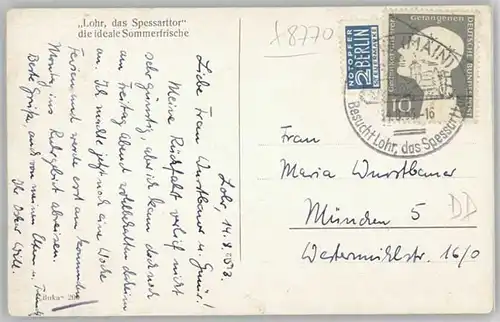 „Lohr, das Spessarttor“
die ideale Sommerfrische
x8770
Lohr, 14.8.1953.
Liebe Frau Wurstbauer u. Gunis!
Meine Rückfahrt verlief nicht
sehr günstig, aber ich kam doch noch
am Freitag abend wohlbehalten daheim
an. Ich mache jetzt noch eine Woche
Ferien und werde erst am kommenden
Montag ins Ruhrgebiet abreisen.
Beste Grüße, auch von meinen Eltern u.
Ihr
NOTOPFER
2 BERLIN
STEUERMARKE
Gefangenen
DEUTSCHE BUNDESPOST
10
(MAIN)
-16
Besucht Lohr, das Spessarttor
Frau
Maria Wurstbauer
München 5
Westermühlstr. 16/0
DD